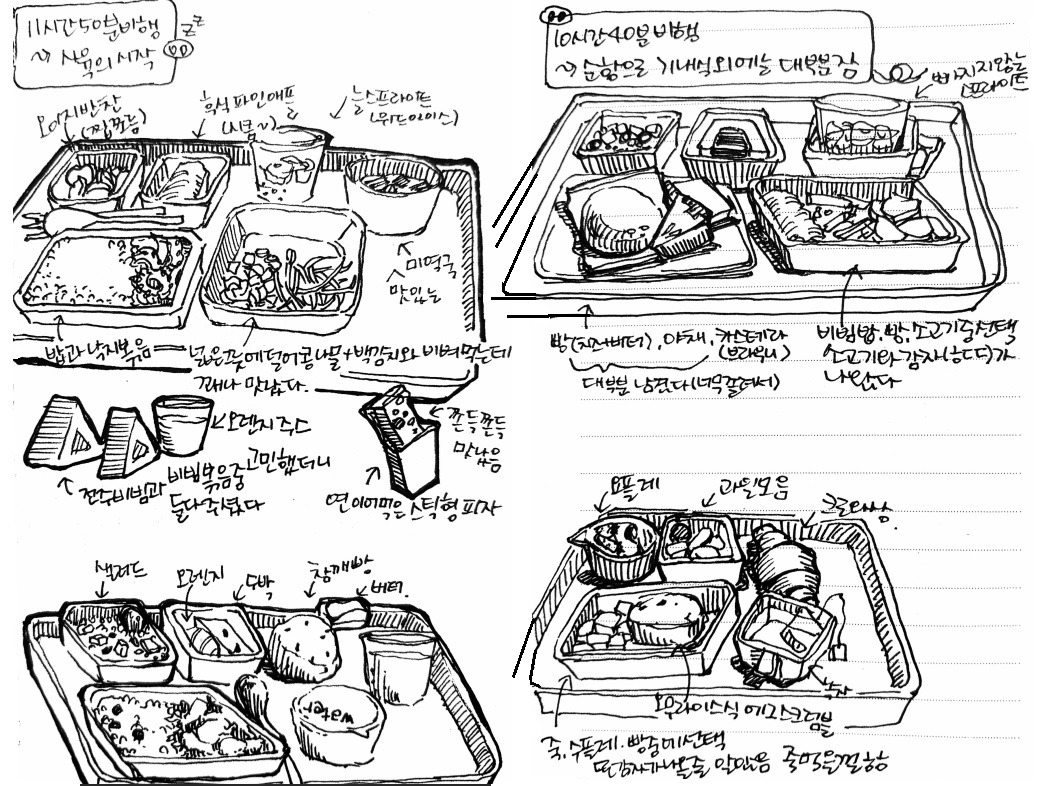 11시간 50분 비행
~> 사육의 시작
zzz
오이지반찬
(짭쪼름)
후식 파인애플
(시큼~)
늘 스프라이트
(위드아이스)
미역국
맛있는
밥과 낙지볶음
넓은 곳에 덜어 콩나물+백김치와 비벼먹는데
꽤나 맛났다.
오렌지 주스
전주비빔과 비빔볶음중 고민했더니
둘다 주셨다
쫀득쫀득
맛났음
연이어 먹은 스틱형 피자
샐러드
오렌지
수박
참깨빵
버터.
water
10시간 40분 비행
~> 순항으로 기내식 외에는 대부분 잠
빠지지않는
스프라이트
빵(치즈버터), 야채, 카스테라
(브라우니)
대부분 남겼다(너무 졸려서)
비빔밥, 빵, 소고기중 선택
소고기와 감자(핫디)가
나왔다
요플레
과일모음
크로와상.
녹차
오무라이스식 에그스크럼블
죽, 수플레, 빵중에 선택
또 감자가 나올줄 알았음 죽먹을껄 함